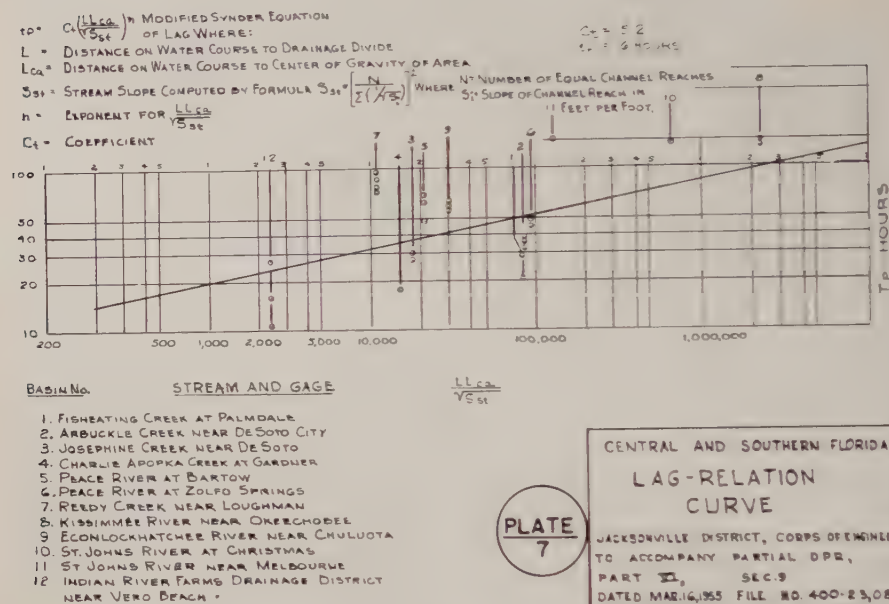 tp= Ct(LLca/√Sst)ⁿ MODIFIED SYNDER EQUATION
OF LAG WHERE:
L = DISTANCE ON WATER COURSE TO DRAINAGE DIVIDE
Lca= DISTANCE ON WATER COURSE TO CENTER OF GRAVITY OF AREA
Sst= STREAM SLOPE COMPUTED BY FORMULA Sst=[N/Σ(1/√Si)]² WHERE N= NUMBER OF EQUAL CHANNEL REACHES
Si= SLOPE OF CHANNEL REACH IN
FEET PER FOOT.
n = EXPONENT FOR LLca/√Sst
Ct = COEFFICIENT
11 10 8
7 3 5 9 6
12 4 2 1
100
50
40
30
20
10
200 500 1,000 2,000 5,000 10,000 100,000 1,000,000
TP HOURS
LLca/√Sst
BASIN NO. STREAM AND GAGE
1. FISHEATING CREEK AT PALMDALE
2. ARBUCKLE CREEK NEAR DE SOTO CITY
3. JOSEPHINE CREEK NEAR DE SOTO
4. CHARLIE APOPKA CREEK AT GARDNER
5. PEACE RIVER AT BARTOW
6. PEACE RIVER AT ZOLFO SPRINGS
7. REEDY CREEK NEAR LOUGHMAN
8. KISSIMMEE RIVER NEAR OKEECHOBEE
9 ECONLOCKHATCHEE RIVER NEAR CHULUOTA
10. ST. JOHNS RIVER AT CHRISTMAS
11 ST JOHNS RIVER NEAR MELBOURNE
12 INDIAN RIVER FARMS DRAINAGE DISTRICT
NEAR VERO BEACH.
PLATE
7
CENTRAL AND SOUTHERN FLORIDA
LAG-RELATION
CURVE
JACKSONVILLE DISTRICT, CORPS OF ENGINEE
TO ACCOMPANY PARTIAL DPR,
PART VI, SEC.9
DATED MAR.16,1955 FILE NO. 400-23,08